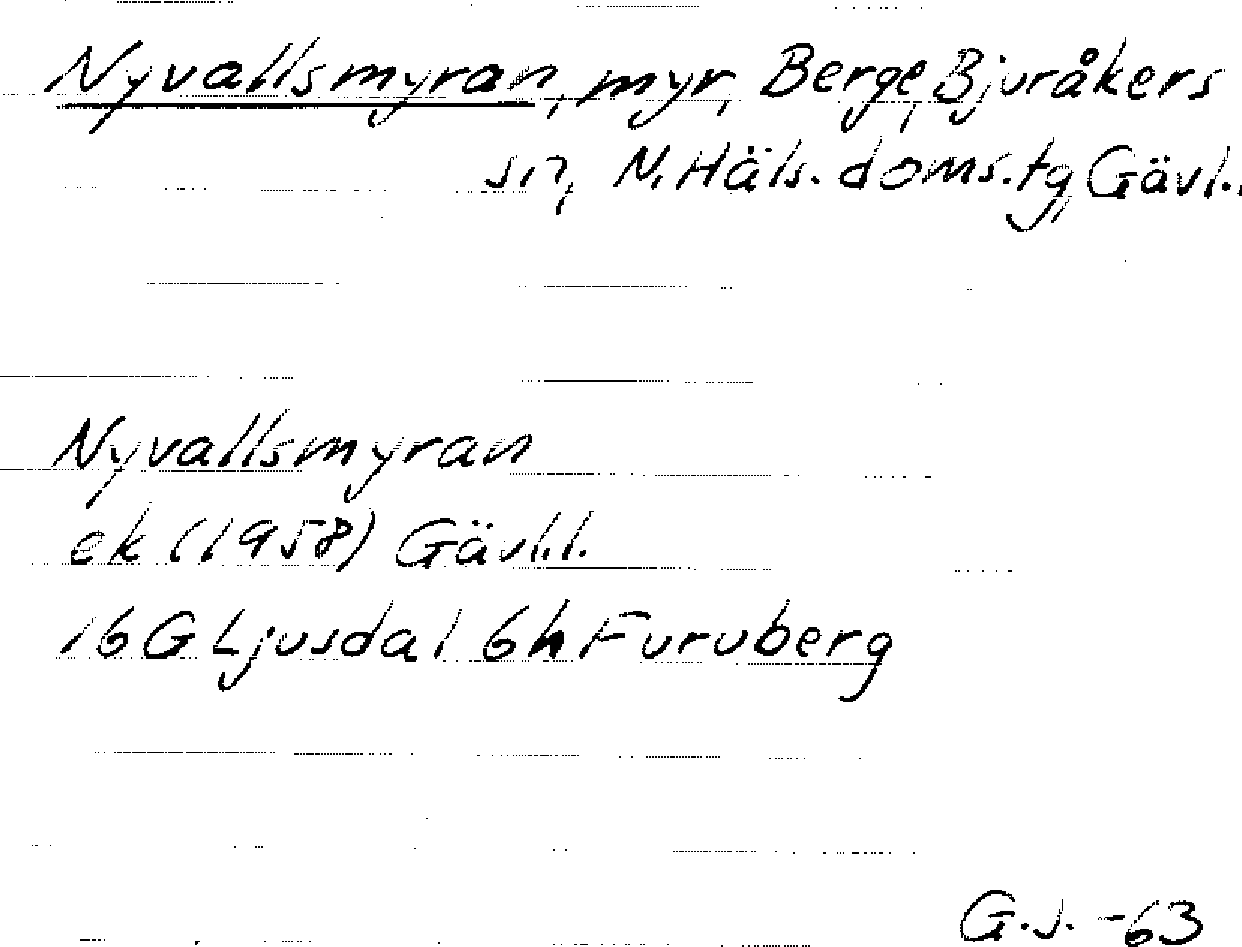 Nyvallsmyran, myr, Berge, Bjuråkers
sn, N. Häls. doms.tg, Gävl..
Nyvallsmyran
ek (1958) Gävl.l.
16 G Ljusdal 6h Furuberg
G.J. -63